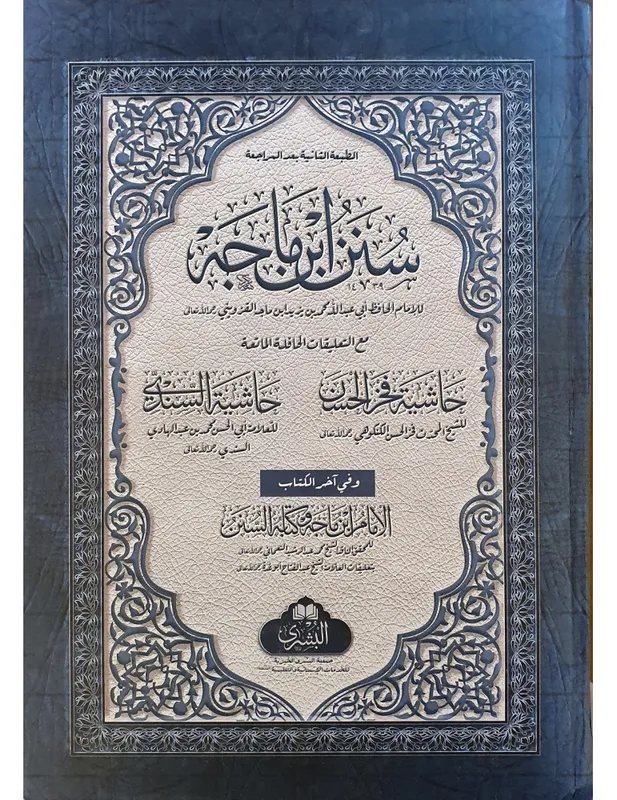 الطبعة الثانية بعد المراجعة
سُنَنُ ابْنِ مَاجَه
للإمام الحافظ أبي عبد الله محمد بن يزيد ابن ماجه القزويني رحمه الله تعالى
مع التعليقات الحافلة الماتعة
حاشية فخر الحسن
للشيخ المحدث فخر الحسن الكنكوهي رحمه الله تعالى
حاشية السندي
للعلامة أبي الحسن محمد بن عبد الهادي
السندي رحمه الله تعالى
وفي آخر الكتاب
الإمام ابن ماجه وكتابه السنن
للمحقق الناقد الشيخ محمد عبد الرشيد النعماني رحمه الله تعالى
بتعليقات العلامة الشيخ عبد الفتاح أبو غدة رحمه الله تعالى
البشرى
جمعية البشرى الخيرية
للخدمات الإنسانية والتعليمية